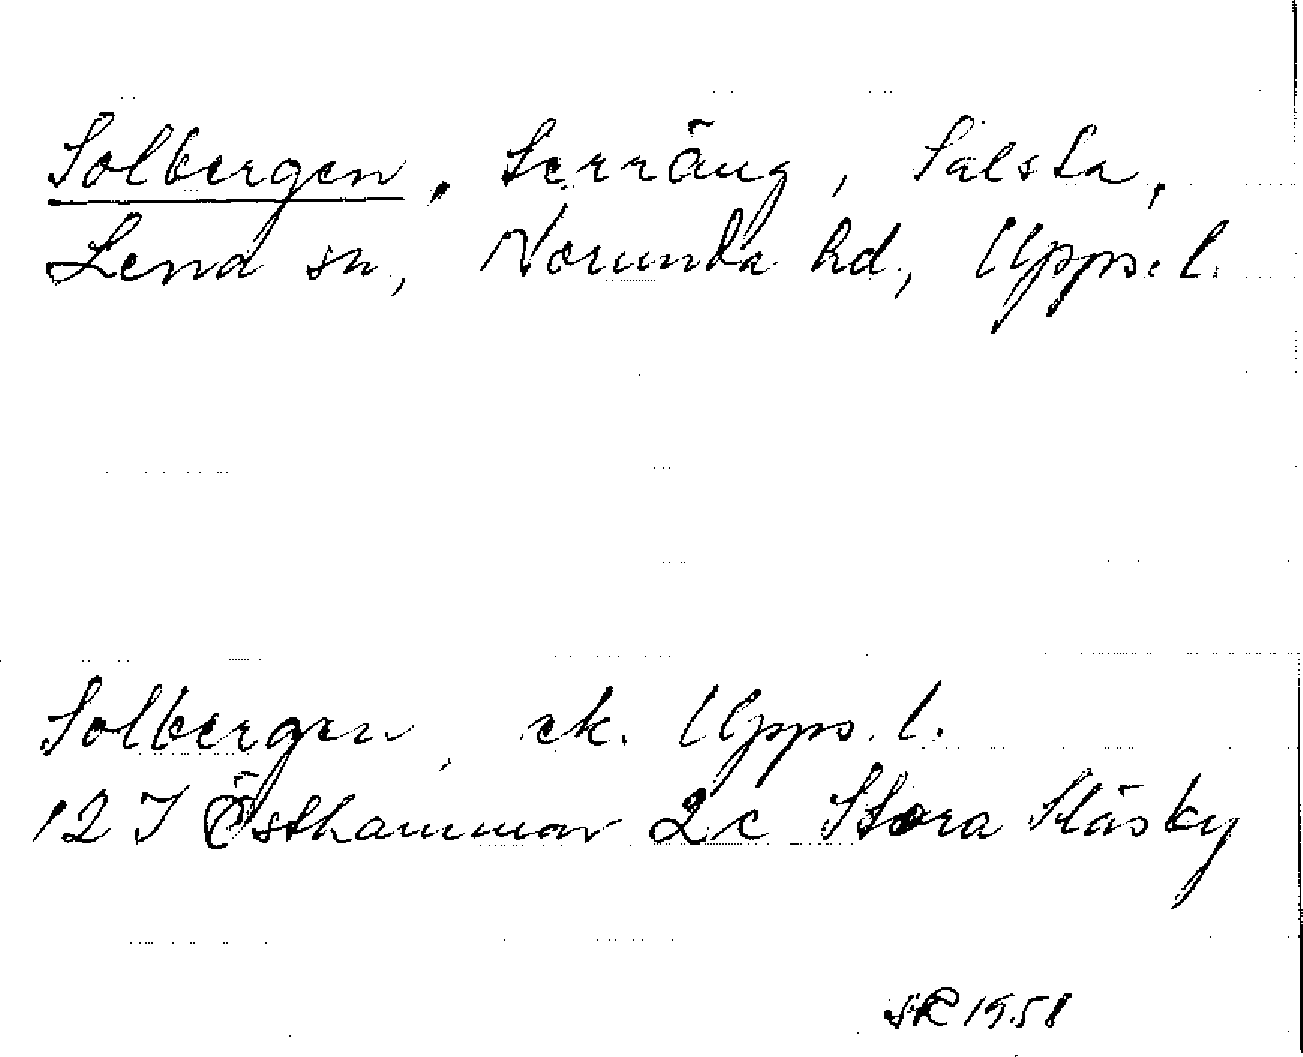 Solbergen, Lerräng, Salsta,
Lena sn, Norunda hd, Upps. l.
Solbergen, ek. Upps. l.
12 I Östhammar 2c Stora Släsby
SR 1958